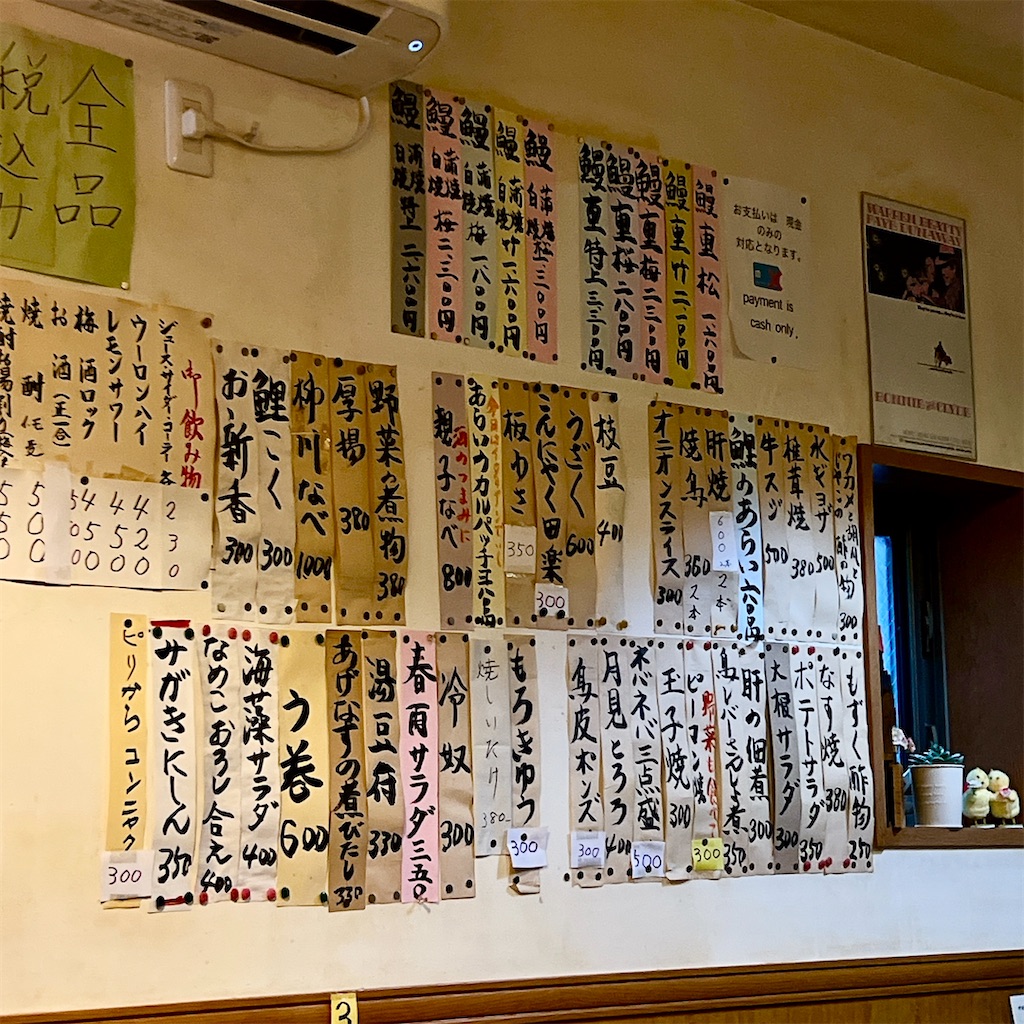 全品
税込み
鰻重松 一六〇〇円
鰻重竹 二一〇〇円
鰻重梅 二三〇〇円
鰻重桜 二八〇〇円
鰻重特上 三三〇〇円
鰻 蒲焼 白焼
鰻 蒲焼 白焼 竹 一六〇〇円
鰻 蒲焼 白焼 梅 一八〇〇円
鰻 蒲焼 白焼 桜 二、三〇〇円
鰻 蒲焼 白焼 特上 二六〇〇円
お支払いは 現金
のみの
対応となります。
payment is
cash only.
WARREN BEATTY
FAYE DUNAWAY
BONNIE and CLYDE
御飲み物
ジュース・サイダー・コーラ 各 230
ウーロンハイ 420
レモンサワー 450
梅酒ロック 450
お酒(正一合)
焼酎
酢の物 300
水ギョザ 500
椎茸焼 380
牛スジ 500
鯉のあらい 六〇〇円
肝焼 2本 600
焼鳥 2本 360
オニオンスライス 300
枝豆 400
うざく 600
こんにゃく田楽 300
板わさ 350
あらいカカルパッチョ 八〇〇円
酒のつまみに
親子なべ 800
野菜の煮物 380
厚揚 380
柳川なべ 1000
鯉こく 300
お新香 300
もずく酢物 250
なす焼 380
ポテトサラダ 350
大根サラダ 300
肝の佃煮 300
鳥レバーさんしょ煮 350
野菜も食べて
ピーマン焼 300
玉子焼 300
ネバネバ三点盛 500
月見とろろ 400
鳥皮ポンズ 300
もろきゅう 300
焼しいたけ 380-
冷奴 300
春雨サラダ 三五〇
湯豆府 330
あげなすの煮びたし 330
う巻 600
海藻サラダ 400
なめこおろし合え 400
みがきにしん 350
ピリからコンニャク 300
3